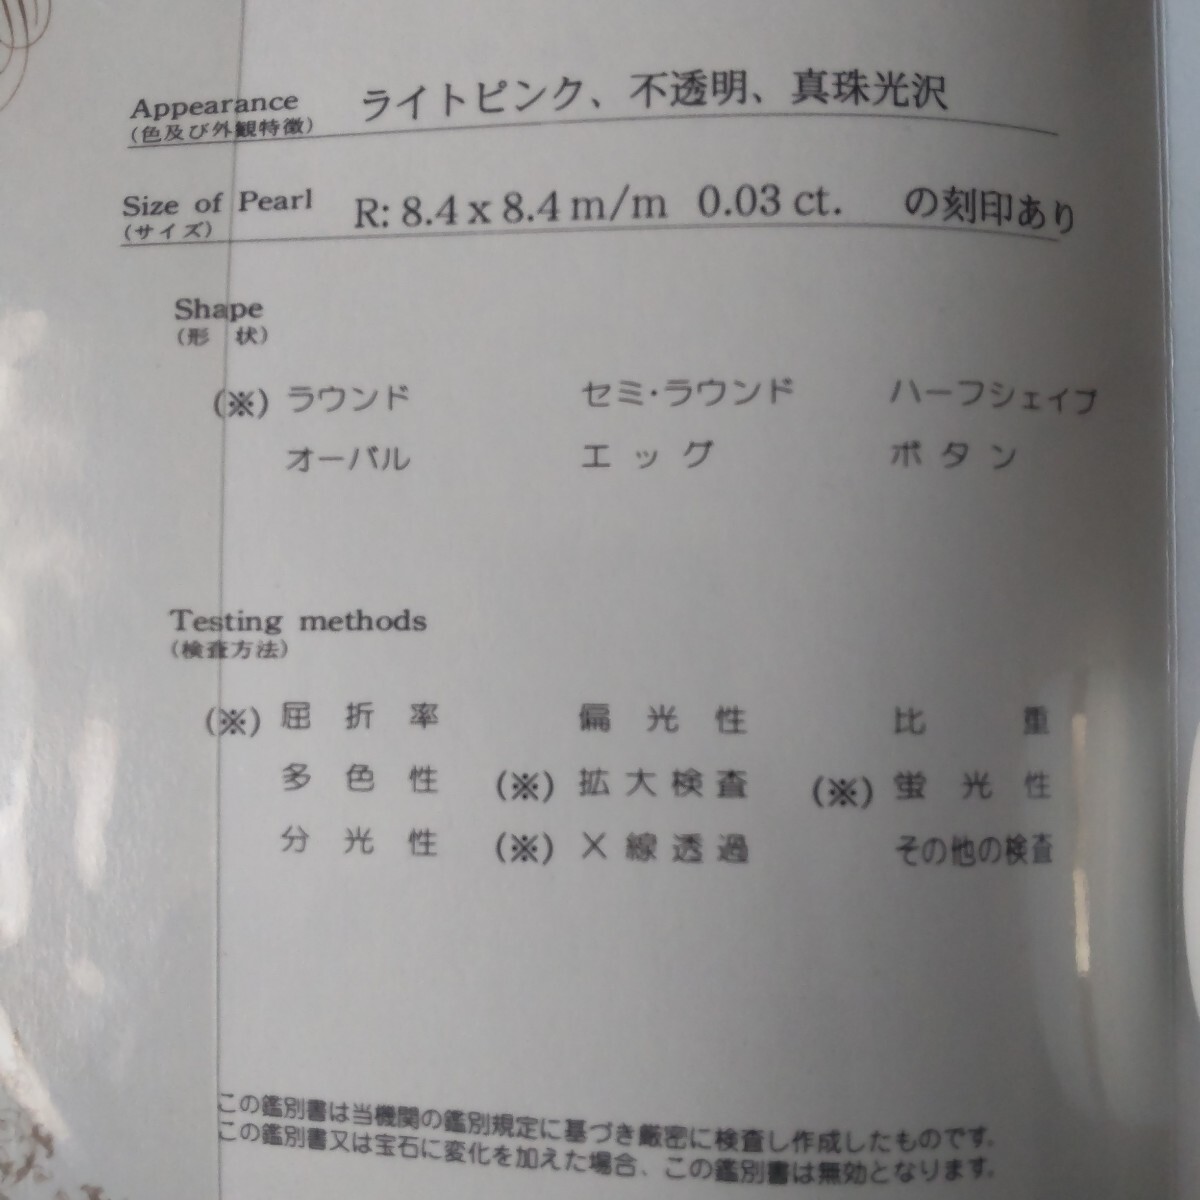 Appearance ライトピンク、不透明、真珠光沢
(色及び外観特徴)
Size of Pearl R: 8.4 x 8.4 m/m 0.03 ct. の刻印あり
(サイズ)
Shape
(形 状)
(※) ラウンド セミ・ラウンド ハーフシェイプ
オーバル エッグ ボタン
Testing methods
(検査方法)
(※) 屈折率 偏光性 比重
多色性 (※) 拡大検査 (※) 蛍光性
分光性 (※) X線透過 その他の検査
この鑑別書は当機関の鑑別規定に基づき厳密に検査し作成したものです。
この鑑別書又は宝石に変化を加えた場合、この鑑別書は無効となります。